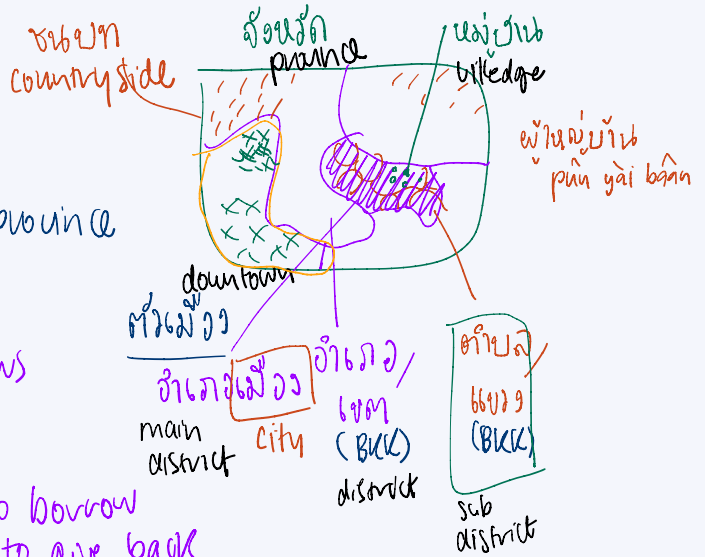 ชนบท
countryside
จังหวัด
province
หมู่บ้าน
villedge
ผู้ใหญ่บ้าน
phûu yài bâan
province
downtown
ตัวเมือง
อำเภอเมือง
main
district
city
อำเภอ/
เขต
(BKK)
district
ตำบล/
แขวง
(BKK)
sub
district
borrow
to give back